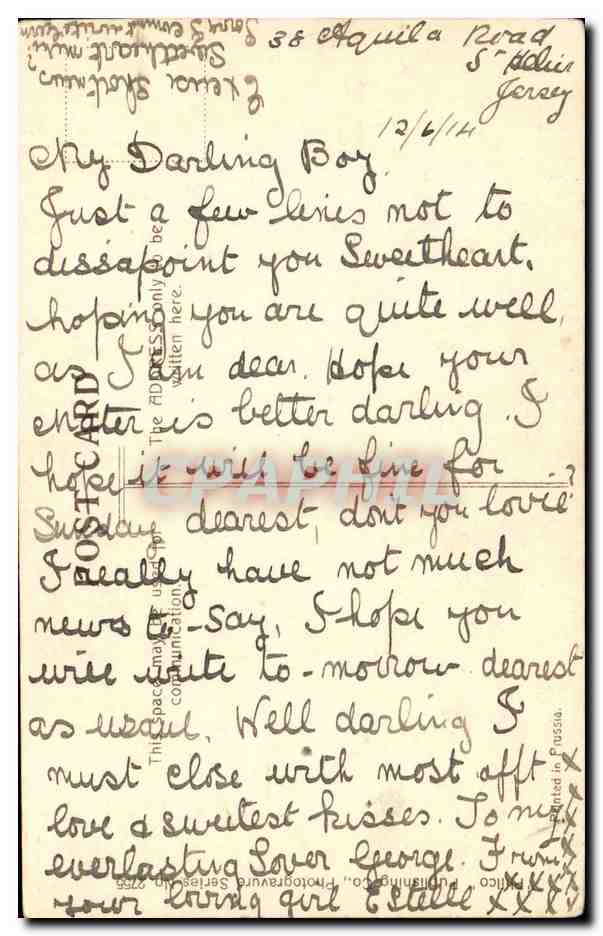 38 Aquila Road
St Helier
Jersey
12/6/14
My Darling Boy,
Just a few lines not to
dissapoint you Sweetheart.
hoping you are quite well,
as I am dear. Hope your
Mater is better darling. I
hope it will be fine for
Sunday dearest, dont you lovie?
I really have not much
news to-say, I hope you
will write to-morrow dearest
as usaul. Well darling I
must close with most afft x
love & sweetest kisses. To my x
everlasting Lover George. From x
your loving girl Estelle x x x x
Excuse Short news
Sweetheart mine?
POST CARD
This space may be used for
communication.
The ADDRESS only to be
written here.
Printed in Prussia.
Philco Publishing Co., Photogravure Series No. 2755
CPAPHIL